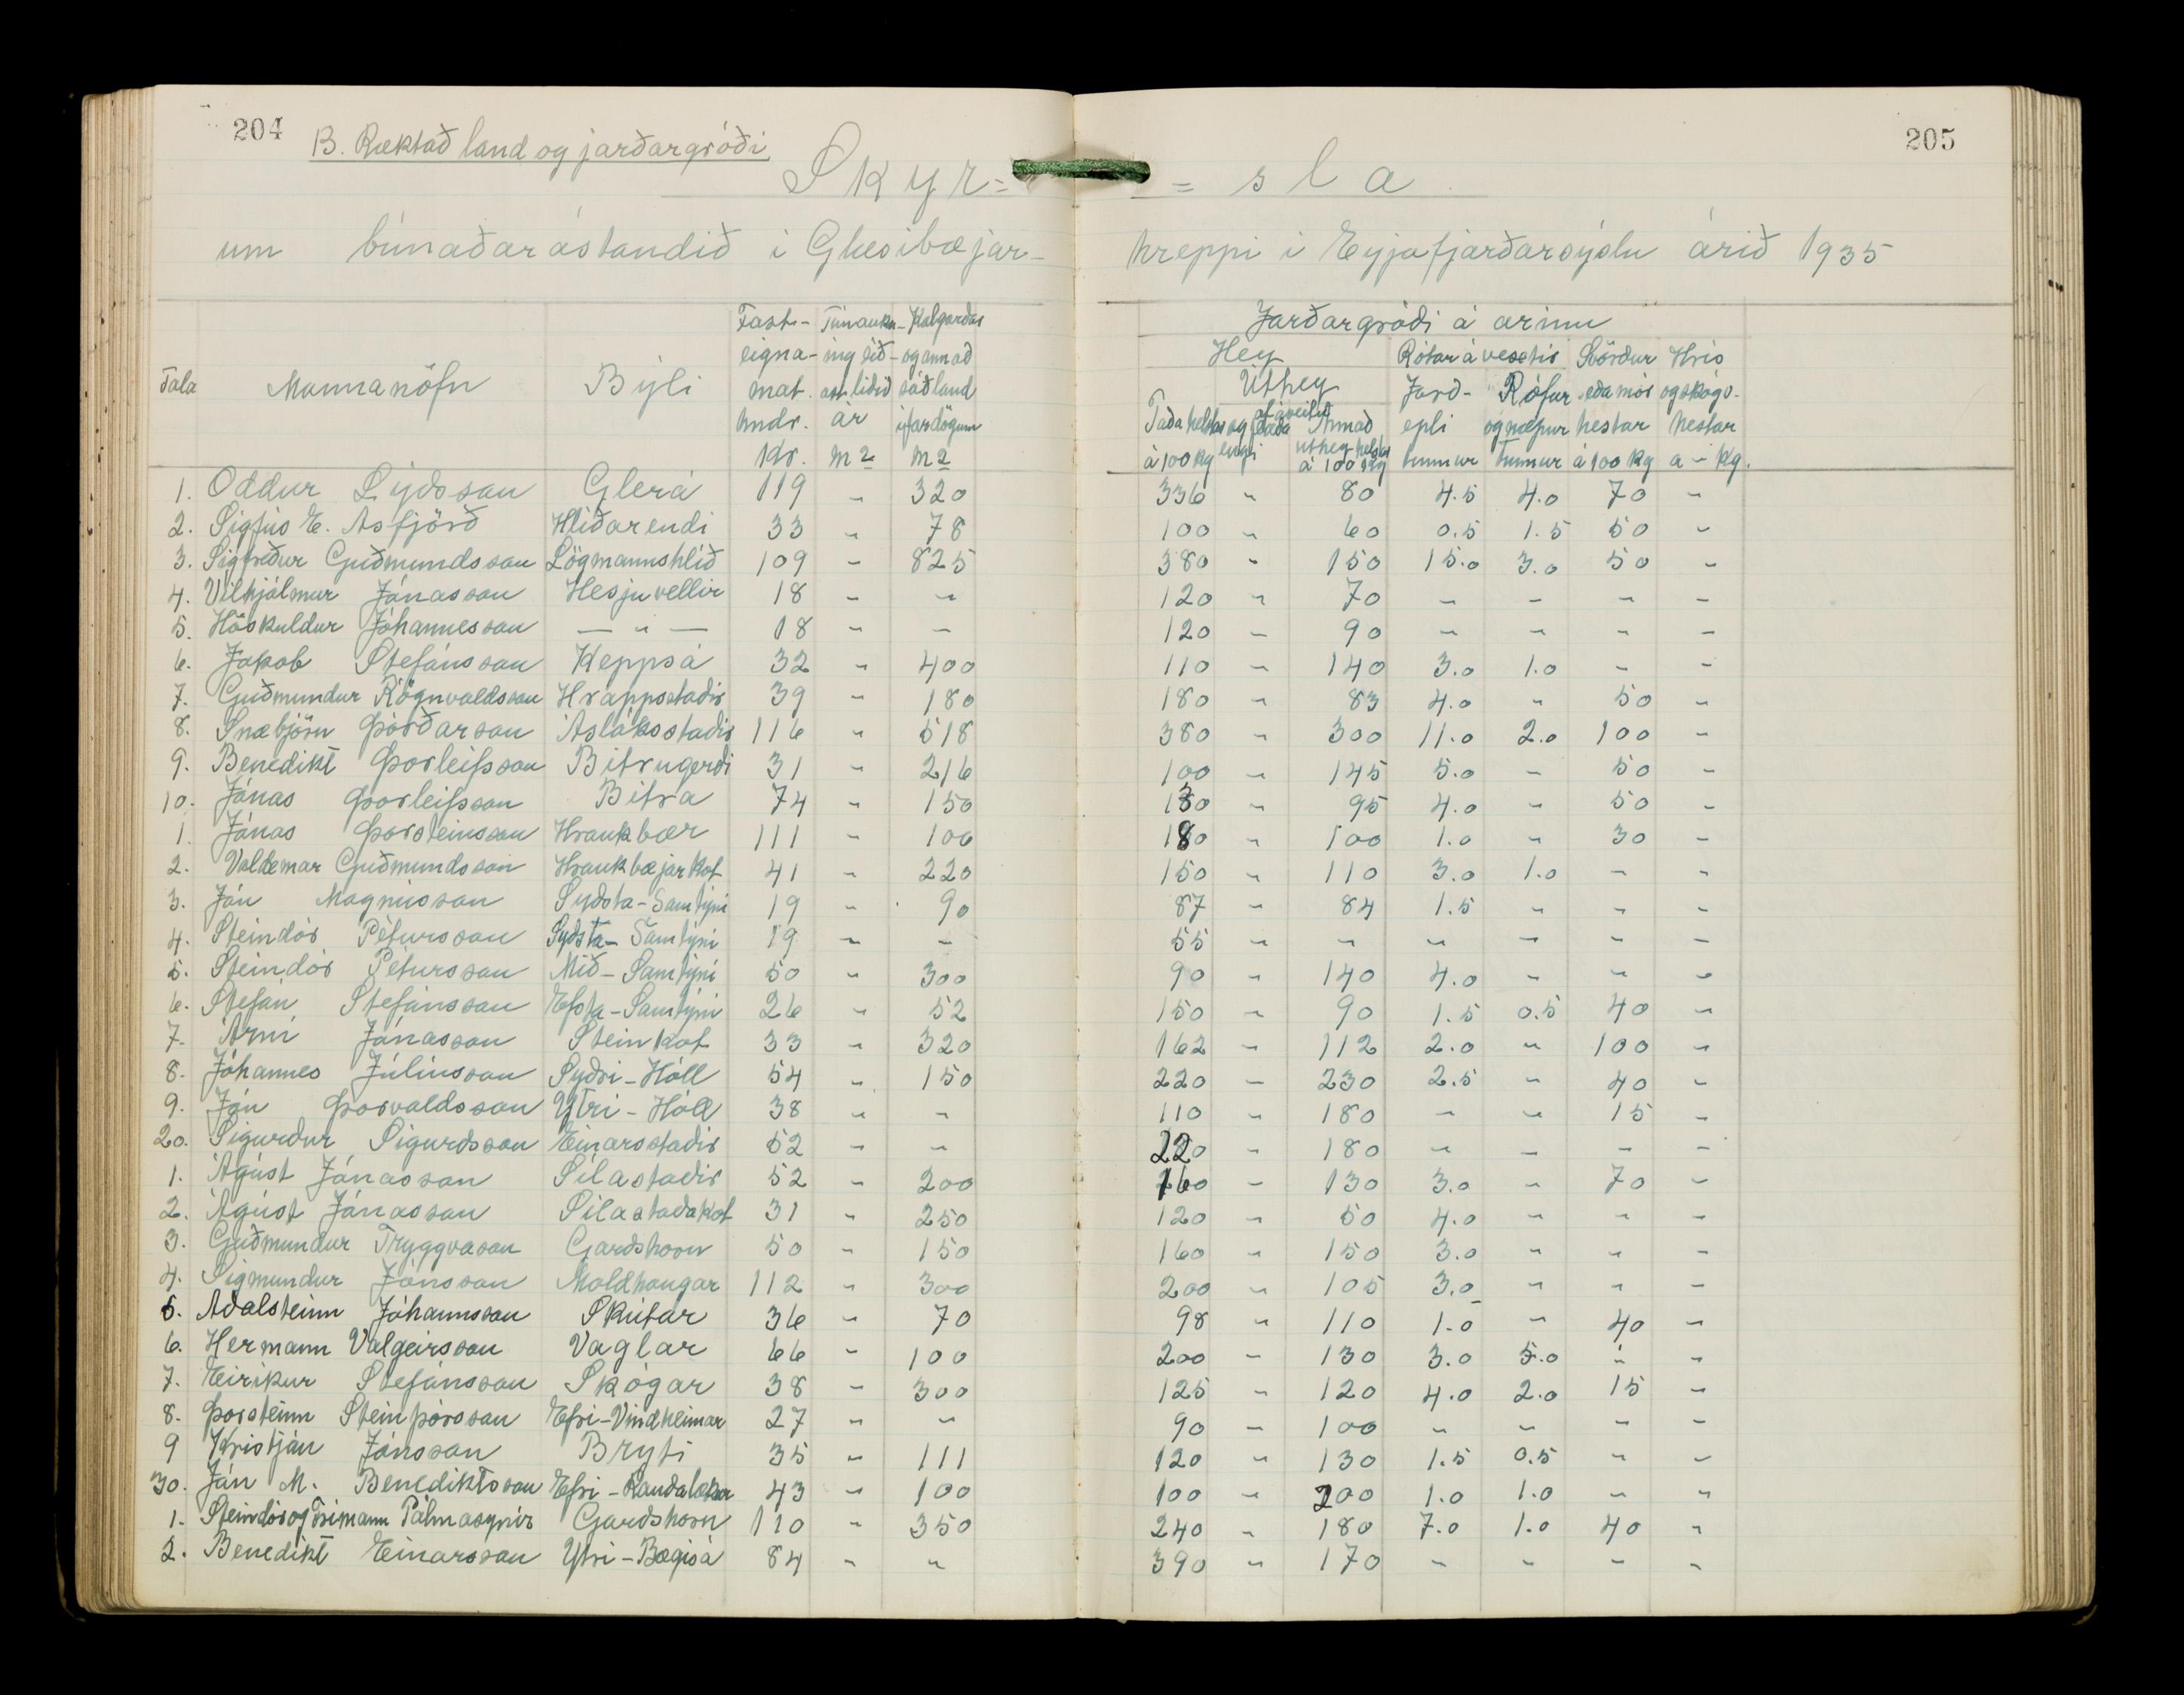 204 205
B. Ræktað land og jarðargróði
Skyr= =sla
um búnaðarástandið í Glæsibæjar- hreppi í Eyjafjarðarsýslu árið 1935
Fast- Túnauk- Kálgarðar Jarðargróði á árinu
eigna- ing síð- og annað Hey Rótarávextir Svörður Hrís
Tala Mannanöfn Býli mat. astliðið sáðland Úthey Jarð- Rófur eða mór og skóg-
hndr. ár í fardögum Taða hestar af áveitu og flæða Annað epli og næpur hestar hestar
Kr. m2 m2 á 100 kg engi úthey hestar á 100 kg tunnur tunnur á 100 kg a - kg.
1. Oddur Lýðsson Glerá 119 " 320 336 " 80 4.5 4.0 70 "
2. Sigfús E. Asfjörð Hlíðarendi 33 " 78 100 " 60 0.5 1.5 50 "
3. Sigfriður Guðmundsson Lögmannshlíð 109 " 825 380 " 150 15.0 3.0 50 "
4. Vilhjálmur Jónasson Hesjuvellir 18 " " 120 " 70 " " " "
5. Höskuldur Jóhannesson — " — 18 " " 120 " 90 " " " "
6. Jakob Stefánsson Keppsá 32 " 400 110 " 140 3.0 1.0 " "
7. Guðmundur Rögnvaldsson Hrappstaðir 39 " 180 180 " 83 4.0 " 50 "
8. Snæbjörn Þórðarson Ásláksstaðir 116 " 518 380 " 300 11.0 2.0 100 "
9. Benedikt Þorleifsson Bitrugerði 31 " 216 100 " 145 5.0 " 50 "
10. Jónas Þorleifsson Bitra 74 " 150 130 " 95 4.0 " 50 "
1. Jónas Þorsteinsson Hraukbær 111 " 100 180 " 100 1.0 " 30 "
2. Valdemar Guðmundsson Hraukbæjarkot 41 " 220 150 " 110 3.0 1.0 " "
3. Jón Magnússon Sydsta-Samtýni 19 " 90 87 " 84 1.5 " " "
4. Steindór Pétursson Sydsta-Samtýni 19 " " 55 " " " " " "
5. Steindór Pétursson Mið-Samtýni 50 " 300 90 " 140 4.0 " " "
6. Stefán Stefánsson Efsta-Samtýni 26 " 52 150 " 90 1.5 0.5 40 "
7. Árni Jónasson Steinkot 33 " 320 162 " 112 2.0 " 100 "
8. Jóhannes Júlíusson Syðri-Hóll 54 " 150 220 " 230 2.5 " 40 "
9. Jón Þorvaldsson Ytri-Hóll 38 " " 110 " 180 " " 15 "
20. Sigurður Sigurdsson Einarsstaðir 52 " " 220 " 180 " " " "
1. Ágúst Jónasson Sílastaðir 52 " 200 160 " 130 3.0 " 70 "
2. Ágúst Jónasson Sílastaðakot 31 " 250 120 " 50 4.0 " " "
3. Guðmundur Tryggvason Garðshorn 50 " 150 160 " 150 3.0 " " "
4. Sigmundur Jónsson Moldhaugar 112 " 300 200 " 105 3.0 " " "
5. Aðalsteinn Jóhannsson Skútar 36 " 70 98 " 110 1.0 " 40 "
6. Hermann Valgeirsson Vaglar 66 " 100 200 " 130 3.0 5.0 " "
7. Eiríkur Stefánsson Skógar 38 " 300 125 " 120 4.0 2.0 15 "
8. Þorsteinn Steinþórsson Efri-Vindheimar 27 " " 90 " 100 " " " "
9 Kristján Jónsson Bryti 35 " 111 120 " 130 1.5 0.5 " "
30. Jón M. Benediktsson Efri-Rauðalækur 43 " 100 100 " 200 1.0 1.0 " "
1. Steindór og Frímann Pálmasynir Garðshorn 110 " 350 240 " 180 7.0 1.0 40 "
2. Benedikt Einarsson Ytri-Bægisá 84 " " 390 " 170 " " " "